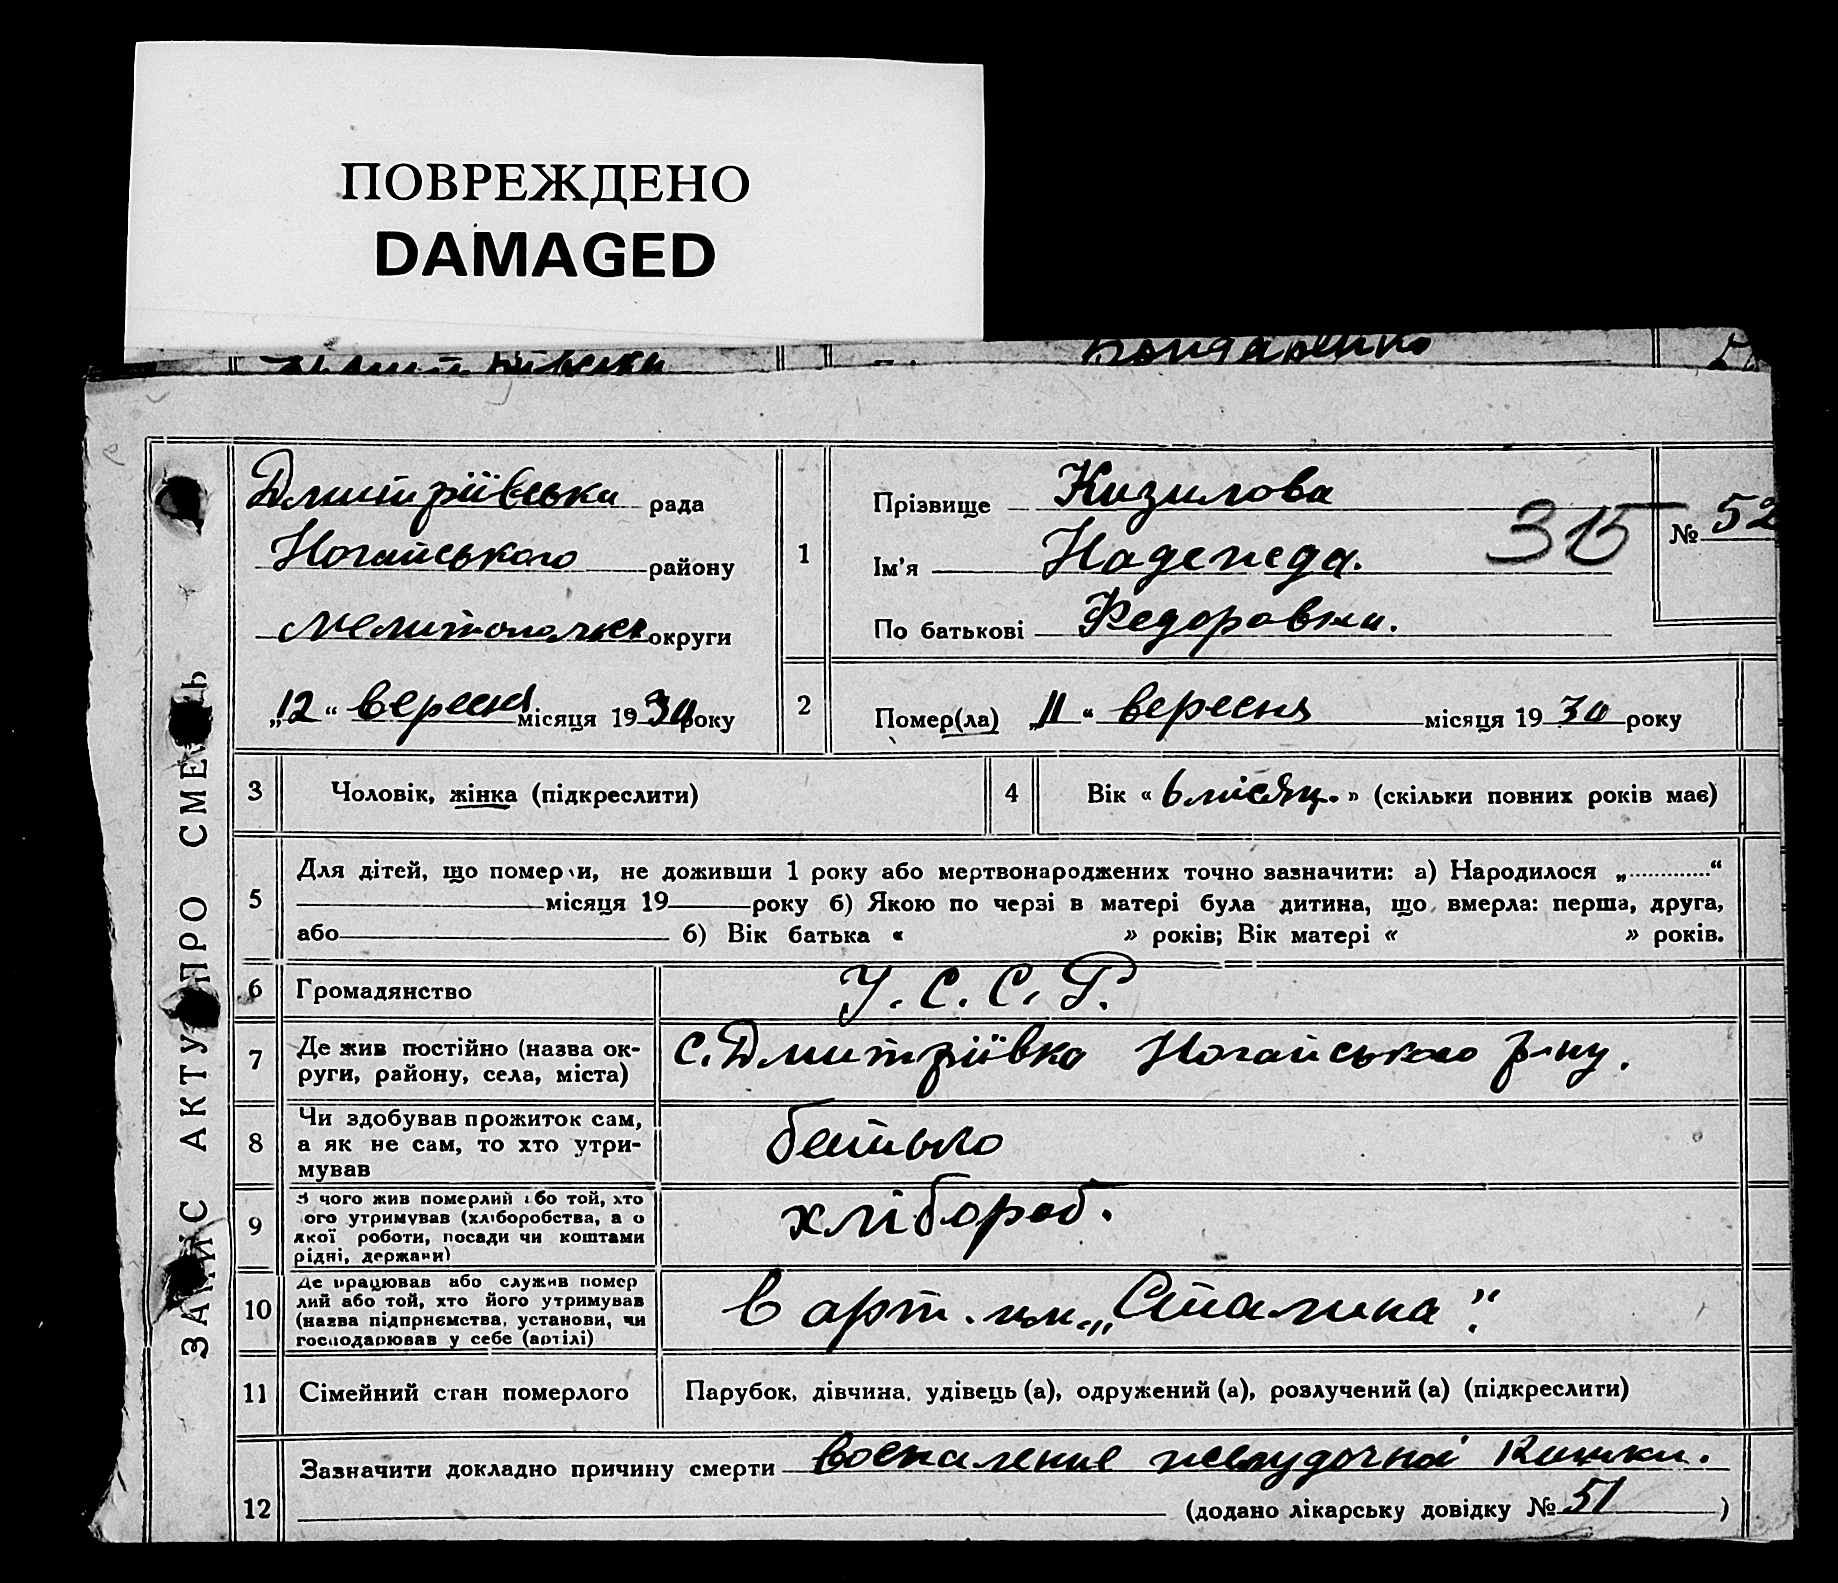 ПОВРЕЖДЕНО
DAMAGED
Бондаренко
ЗАПИС АКТУ ПРО СМЕ Ь
Дмитріївська рада
Ногайського району
округи
„12“ вересня місяця 1930 року
1
Прізвище Кизилова
Ім’я Надежда. 315
По батькові Федоровна.
№ 52
2
Помер(ла) „11“ вересня місяця 1930 року
3 Чоловік, жінка (підкреслити)
4 Вік « 6 місяц. » (скільки повних років має)
5 Для дітей, що помер и, не доживши 1 року або мертвонароджених точно зазначити: а) Народилося „ “
місяця 19 року б) Якою по черзі в матері була дитина, що вмерла: перша, друга,
або б) Вік батька « » років; Вік матері « » років.
6 Громадянство У. С. С. Р.
7 Де жив постійно (назва ок-
руги, району, села, міста)
с. Дмитріївка Ногайського р-ну.
8 Чи здобував прожиток сам,
а як не сам, то хто утри-
мував
батько
9 З чого жив померлий або той, хто
ого утримував (хліборобства, а о
якої роботи, посади чи коштами
рідні, держави)
хлібороб.
10 Де працював або служив помер
лий або той, хто його утримував
(назва підприємства, установи, чи
господарював у себе (артілі)
в арт. им. „Сталина“.
11 Сімейний стан померлого Парубок, дівчина, удівець (а), одружений (а), розлучений (а) (підкреслити)
12 Зазначити докладно причину смерти воспаление желудочной кишки.
(додано лікарську довідку № 51 )